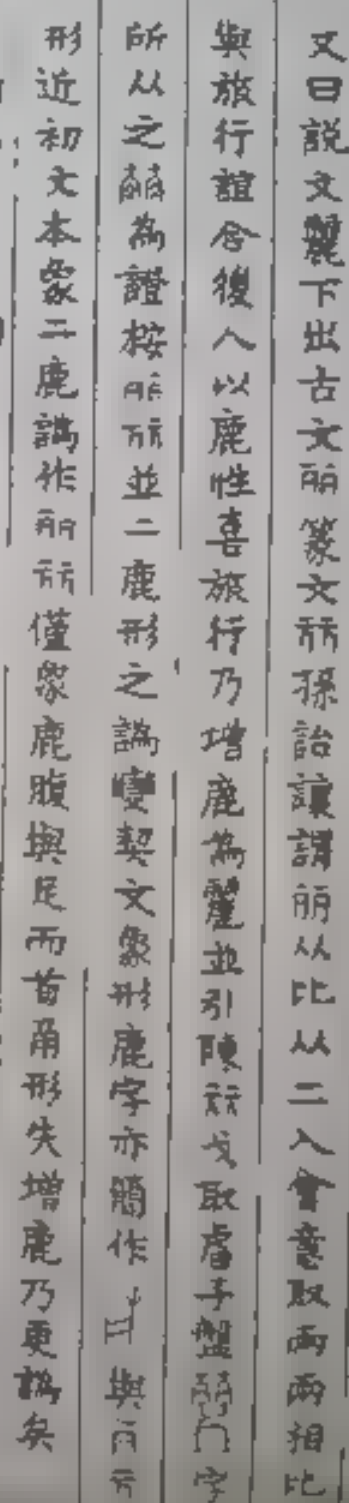 又曰説文麗下出古文丽篆文𠀫孫詒讓謂丽从比从二入會意取兩兩相比
與旅行誼合後人以鹿性喜旅行乃增鹿為麗並引陳𠀫戈取膚子盤
字所从之為證桉丽𠀫並二鹿形之譌變契文象形鹿字亦簡作與
形近初文本象二鹿譌作丽𠀫僅象鹿腹與足而首角形失增鹿乃更譌矣